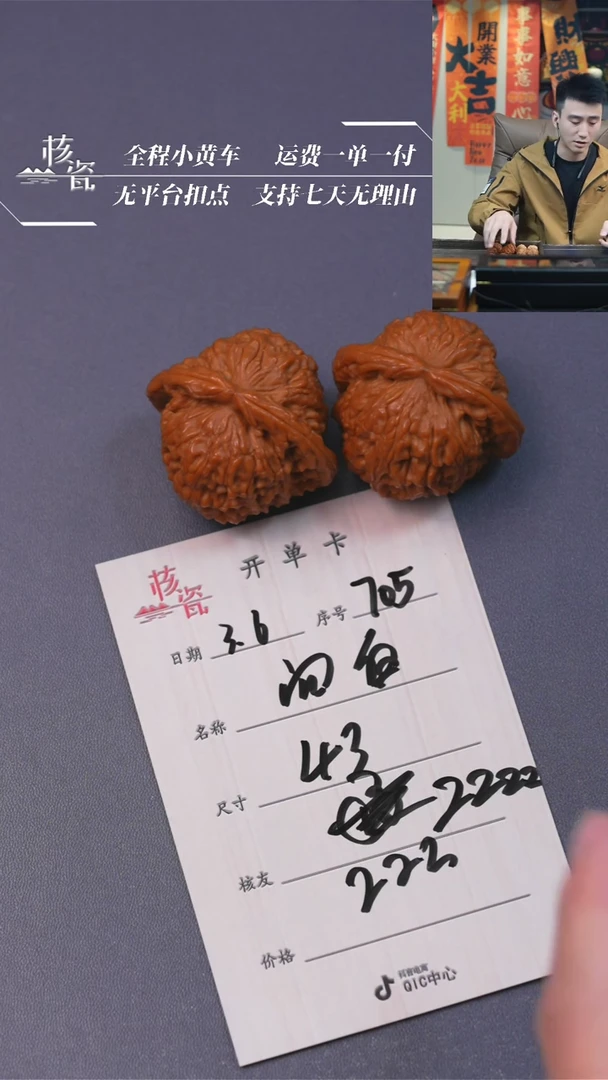 核瓷
全程小黄车 运费一单一付
无平台扣点 支持七天无理由
開業
大吉
大利
事事如意
心
財興
核瓷
开单卡
日期 3.6 序号 705
名称 闷白
尺寸 43
核友 2222
价格 222
抖音电商
QIC中心